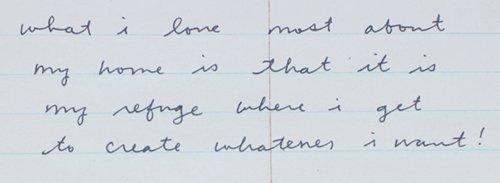 what i love most about
my home is that it is
my refuge where i get
to create whatever i want!